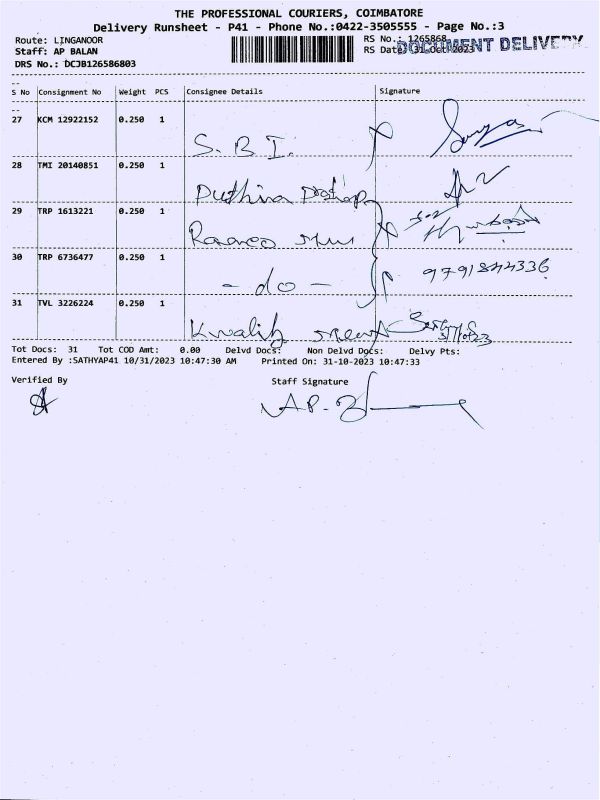 THE PROFESSIONAL COURIERS, COIMBATORE
Delivery Runsheet - P41 - Phone No.:0422-3505555 - Page No.:3
Route: LINGANOOR
RS No.: 1265868
Staff: AP BALAN
RS Date: 31-Oct-2023
DOCUMENT DELIVERY
DRS No.: DCJB126586803
S No Consignment No Weight PCS Consignee Details Signature
27 KCM 12922152 0.250 1 S. B. I.
28 TMI 20140851 0.250 1
29 TRP 1613221 0.250 1
30 TRP 6736477 0.250 1 - do - 9791844336
31 TVL 3226224 0.250 1
Tot Docs: 31 Tot COD Amt: 0.00 Delvd Docs: Non Delvd Docs: Delvy Pts:
Entered By :SATHYAP41 10/31/2023 10:47:30 AM Printed On: 31-10-2023 10:47:33
Verified By Staff Signature
AP.